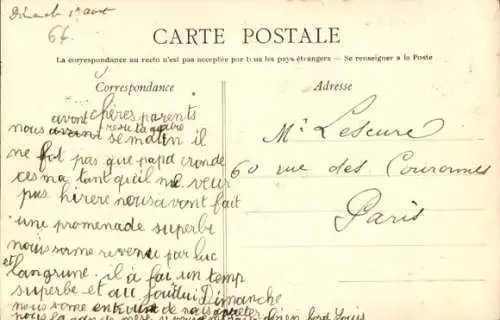 Dimanche 1er aout
66.
CARTE POSTALE
La correspondance au recto n'est pas acceptée par tous les pays étrangers. — Se renseigner à la Poste
Correspondance
chères parents
nous avont resu la votre
se matin il
ne fot pas que papa cronde
ces ma tant qu'eil ne veux
pas hirere nous avont fait
une promenade superbe
nous some revenu par luc
et langrune. il à fai un temp
superbe et au jourdui Dimanche
nous some entrin de nous apreter
Adresse
Mr Leseure
60 rue des Couronnes
Paris